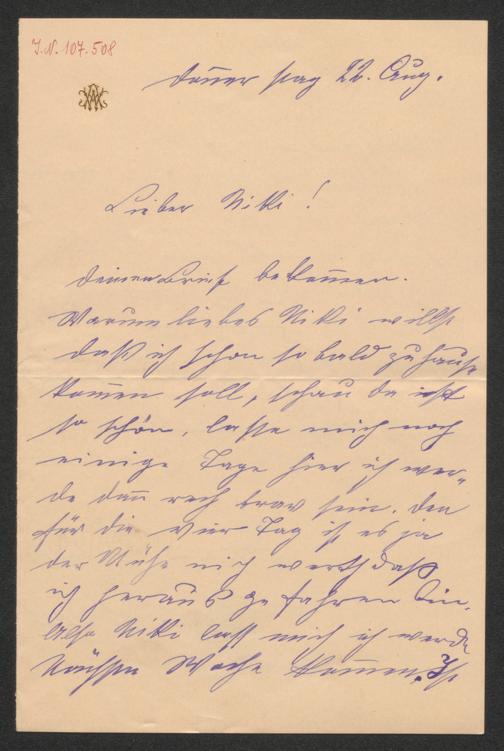 I.N. 107.508
Donner stag 22. Aug.
Lieber Niki!
deinen Brief bekommen.
Warum liebes Niki willst
daß ich schon so bald zu hause
kommen soll, schau da ist
so schön, lasse mich noch
einige Tage hier ich wer-
de dan rech brav sein. den
für die vier Tag is es ja
der Mühe nich werth daß
ich heraus gefahren bin.
Also Niki lass mich ich werde
Nächste Woche kommen. Ist